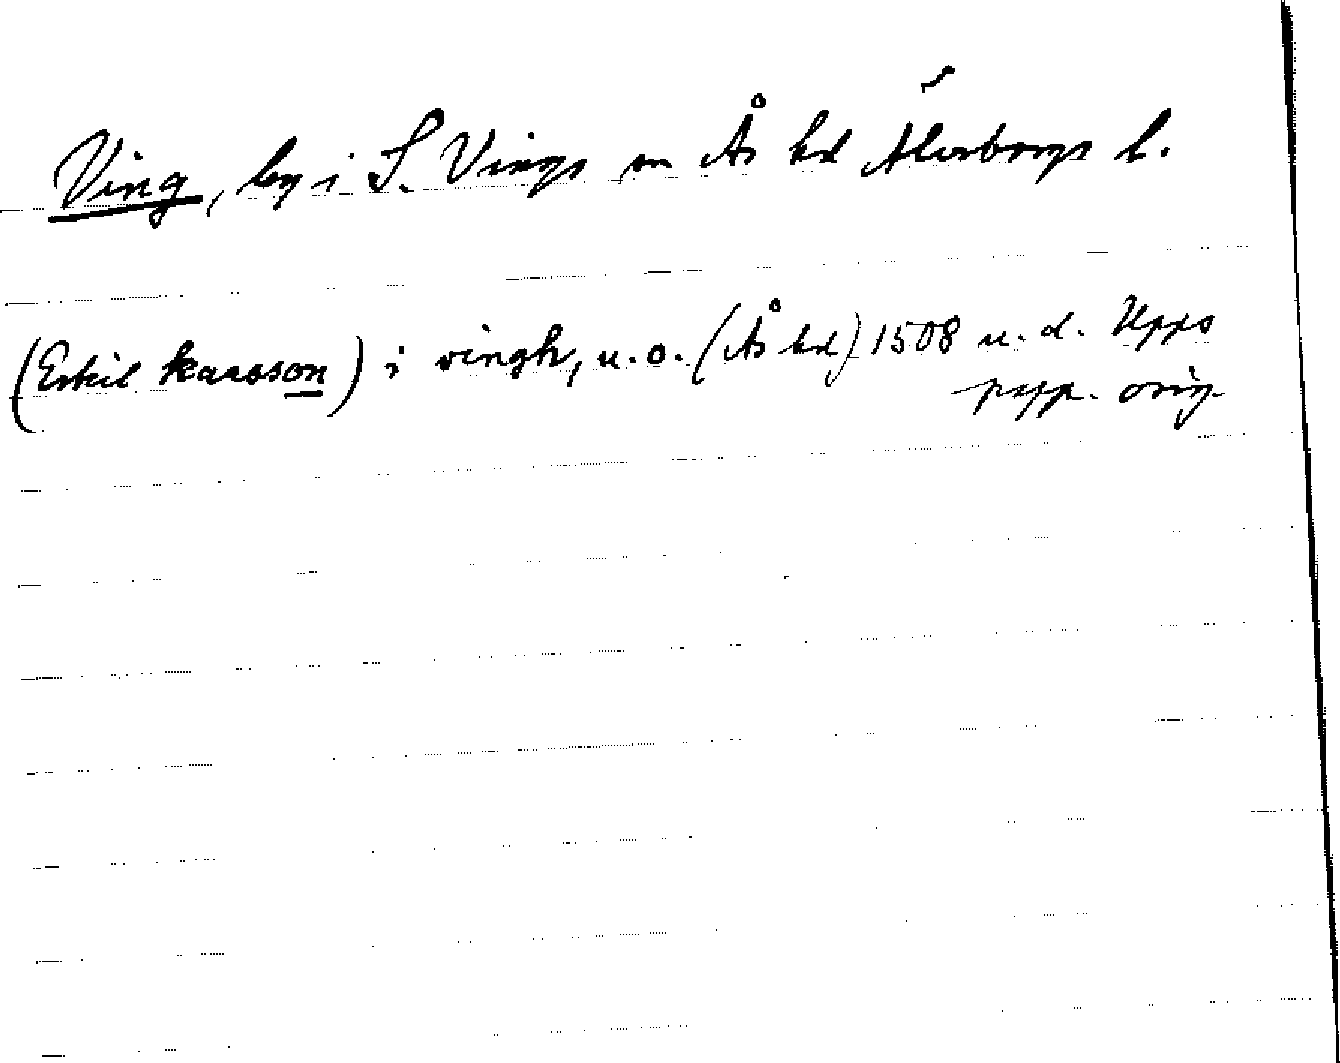 Ving, by i S. Vings sn Ås hd Älvsborgs l.
(Eskil kaasson) i vingh, u. o. (Ås hd) 1508 u. d. Upps
papp. orig.